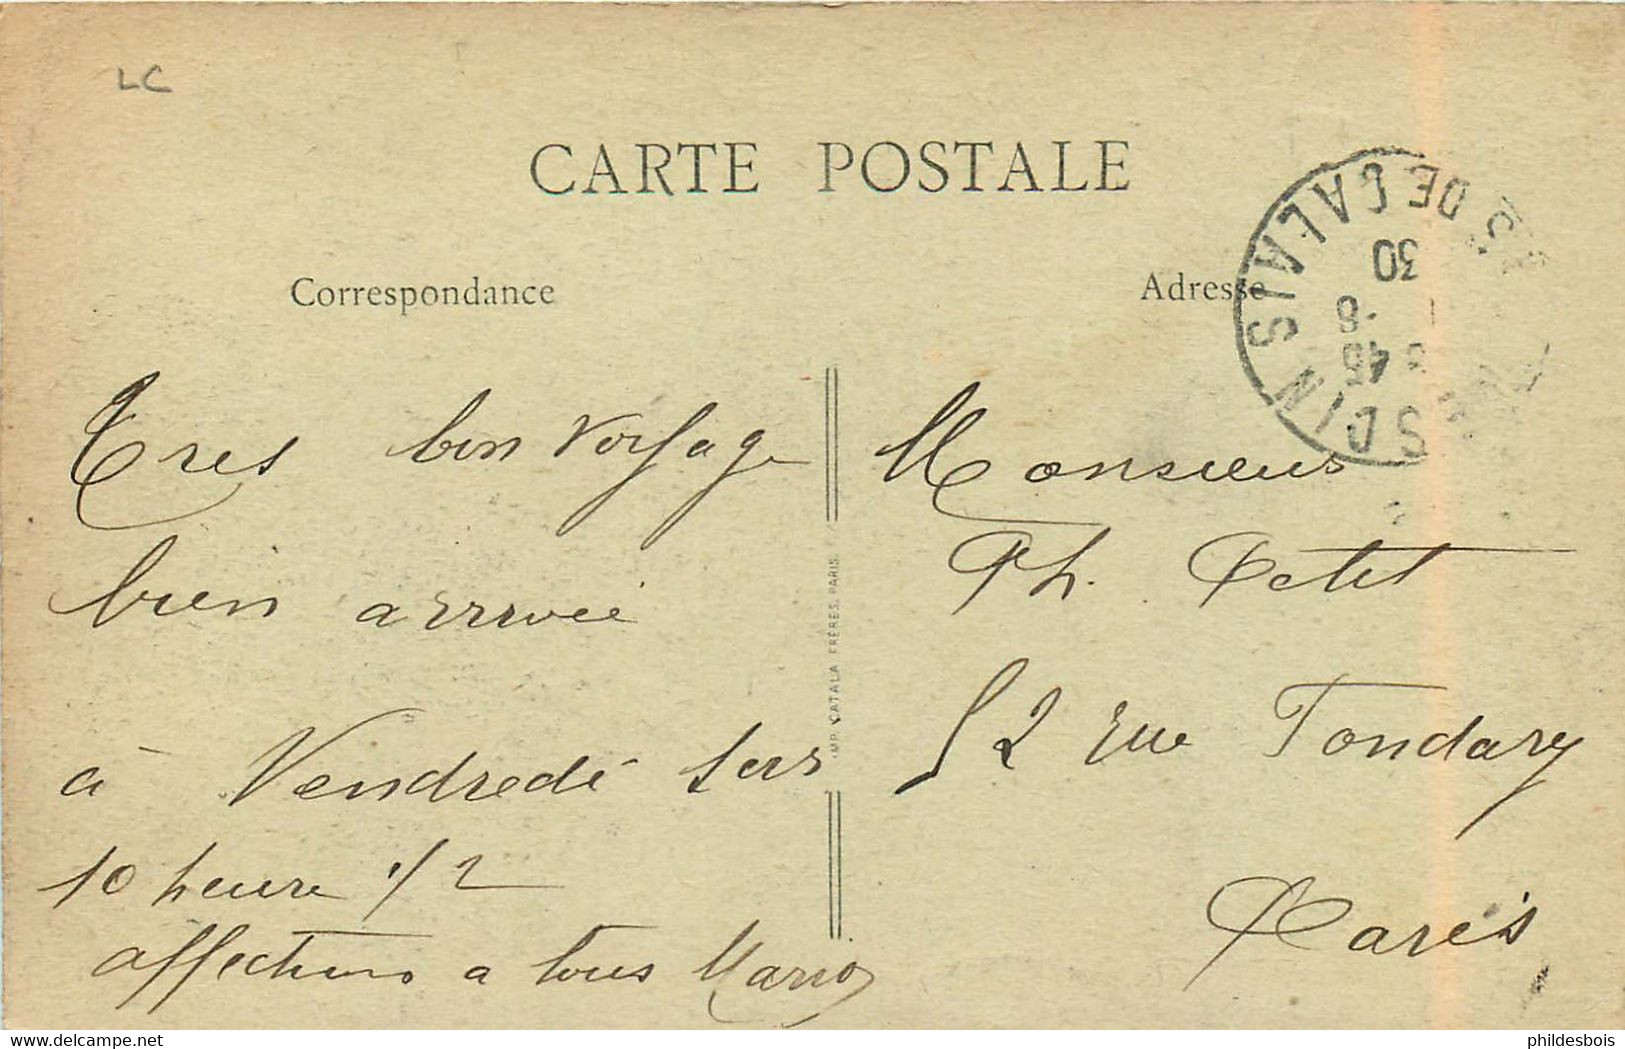 LC
CARTE POSTALE
Correspondance
Adresse
PAS DE CALAIS
30
-8
45
SDIN
Tres bon voyage
bien arrivée
à Vendredi sers
10 heure 1/2
affections a tous Mario
IMP. CATALA FRÈRES, PARIS
Monsieur
Ph. Petit
52 rue Fondary
Paris
delcampe.net
phildesbois